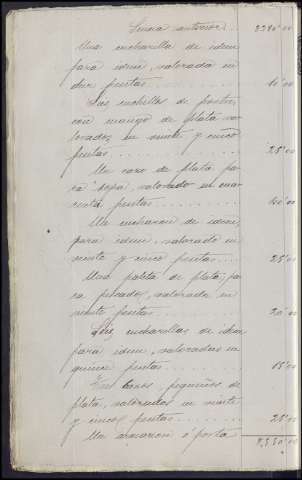 Suma anterior 8280'00
Una cucharilla de idem
para idem, valorada en
diez pesetas 10'00
Seis cuchillos de postre,
con mango de plata va-
lorados, en veinte y cinco
pesetas 25'00
Un cazo de plata pa-
ra sopa, valorado en cua-
renta pesetas 40'00
Un cucharon de idem,
para idem, valorado en
veinte y cinco pesetas 25'00
Una paleta de plata, pa-
ra pescados, valorada en
veinte pesetas 20'00
Seis, cucharillas de idem
para idem, valoradas en
quince pesetas 15'00
Tres pequeños de
plata, valorados en veinte
y cinco pesetas 25'00
Un ó porta